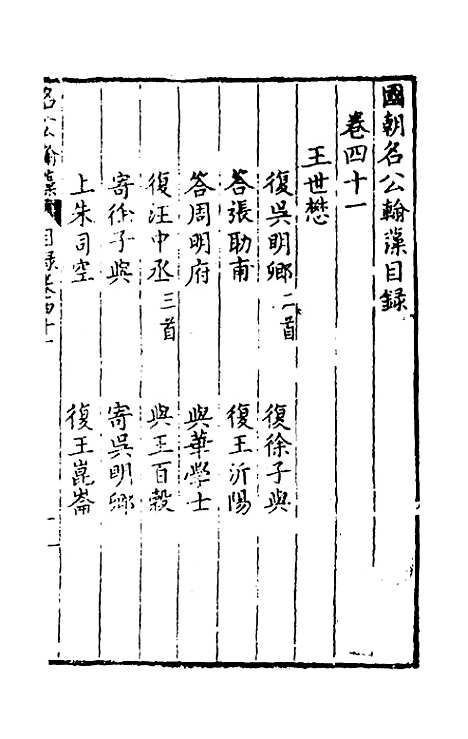 國朝名公翰藻目錄
卷四十一
王世懋
復吳明鄉二首 復徐子與
答張助甫 復王沂陽
答周明府 與華學士
復汪中丞三首 與王百穀
寄徐子與 寄吳明鄉
上朱司空 復王崑崙
名公翰藻 目錄卷四十一 一